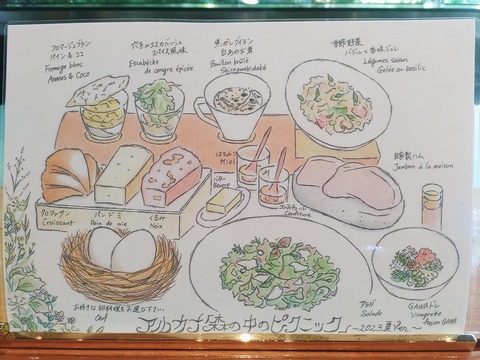 フロマージュブラン
パイン & ココ
Fromage blanc
Ananas & Coco
穴子のエスカベッシュ
スパイス風味
Escabèche
de congre épicée
焦がしブイヨン
白あめ煮
Bouillon brûlé
季節野菜
バジル×香味ジュレ
Légumes saison
Gelée au basilic
はちみつ
Miel
自家製ハム
Jambon à la maison
バター
Beurre
コンフィチュール
Confiture
クロワッサン
Croissant
パン ド ミ
Pain de mie
くるみ
Noix
お好きな卵料理をお選び下さい。
Oeuf
サラダ
Salade
GAWAドレ
Vinaigrette
façon GAWA
アルカナ 森の中のピクニック
~2023.夏Ver.~